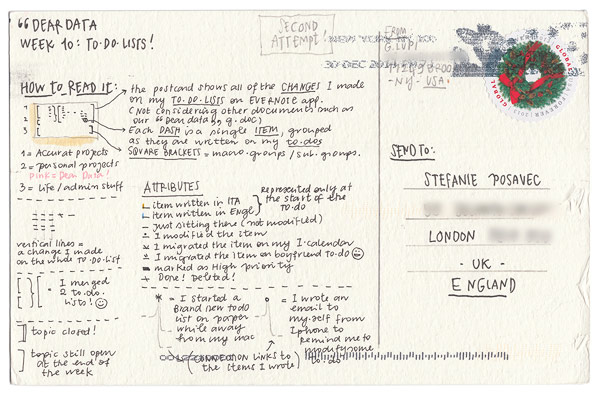 “ DEAR DATA
WEEK 10: TO-DO-LISTS!
SECOND
ATTEMPT!
FROM
G. LUPI
30 DEC
-NY- USA
GLOBAL
GLOBAL
FOREVER
HOW TO READ IT:
1
2
3
the postcard shows all of the CHANGES I made
on my TO-DO-LISTS on EVERNOTE app.
(Not considering other documents such as
our “Dear data„ g.doc)
Each DASH is a single ITEM, grouped
as they are written on my to.dos
SQUARE BRACKETS = macro-groups / sub.groups.
1 = Accurat projects
2 = personal projects
Pink = Dear Data!
3 = life / admin stuff
vertical lines =
a change I made
on the whole TO-DO-LIST
= I merged
2 to.do.
lists! ☺
topic closed!
topic still open
at the end of
the week
ATTRIBUTES
item written in ITA
item written in Engl
represented only at
the start of the
TO-DO
just sitting there (not modified)
I modified the item
I migrated the item on my I-calendar
I migrated the item on boyfriend to-do ☺
marked as High priority
+ Done! Deleted!
* = I started a
Brand new todo
list on paper
while away
from my mac
° = I wrote an
email to
myself from
Iphone to
remind me to
modify some
to-do
(CONNECTION LINKS to
the items I wrote)
SEND TO:
STEFANIE POSAVEC
LONDON
- UK -
ENGLAND